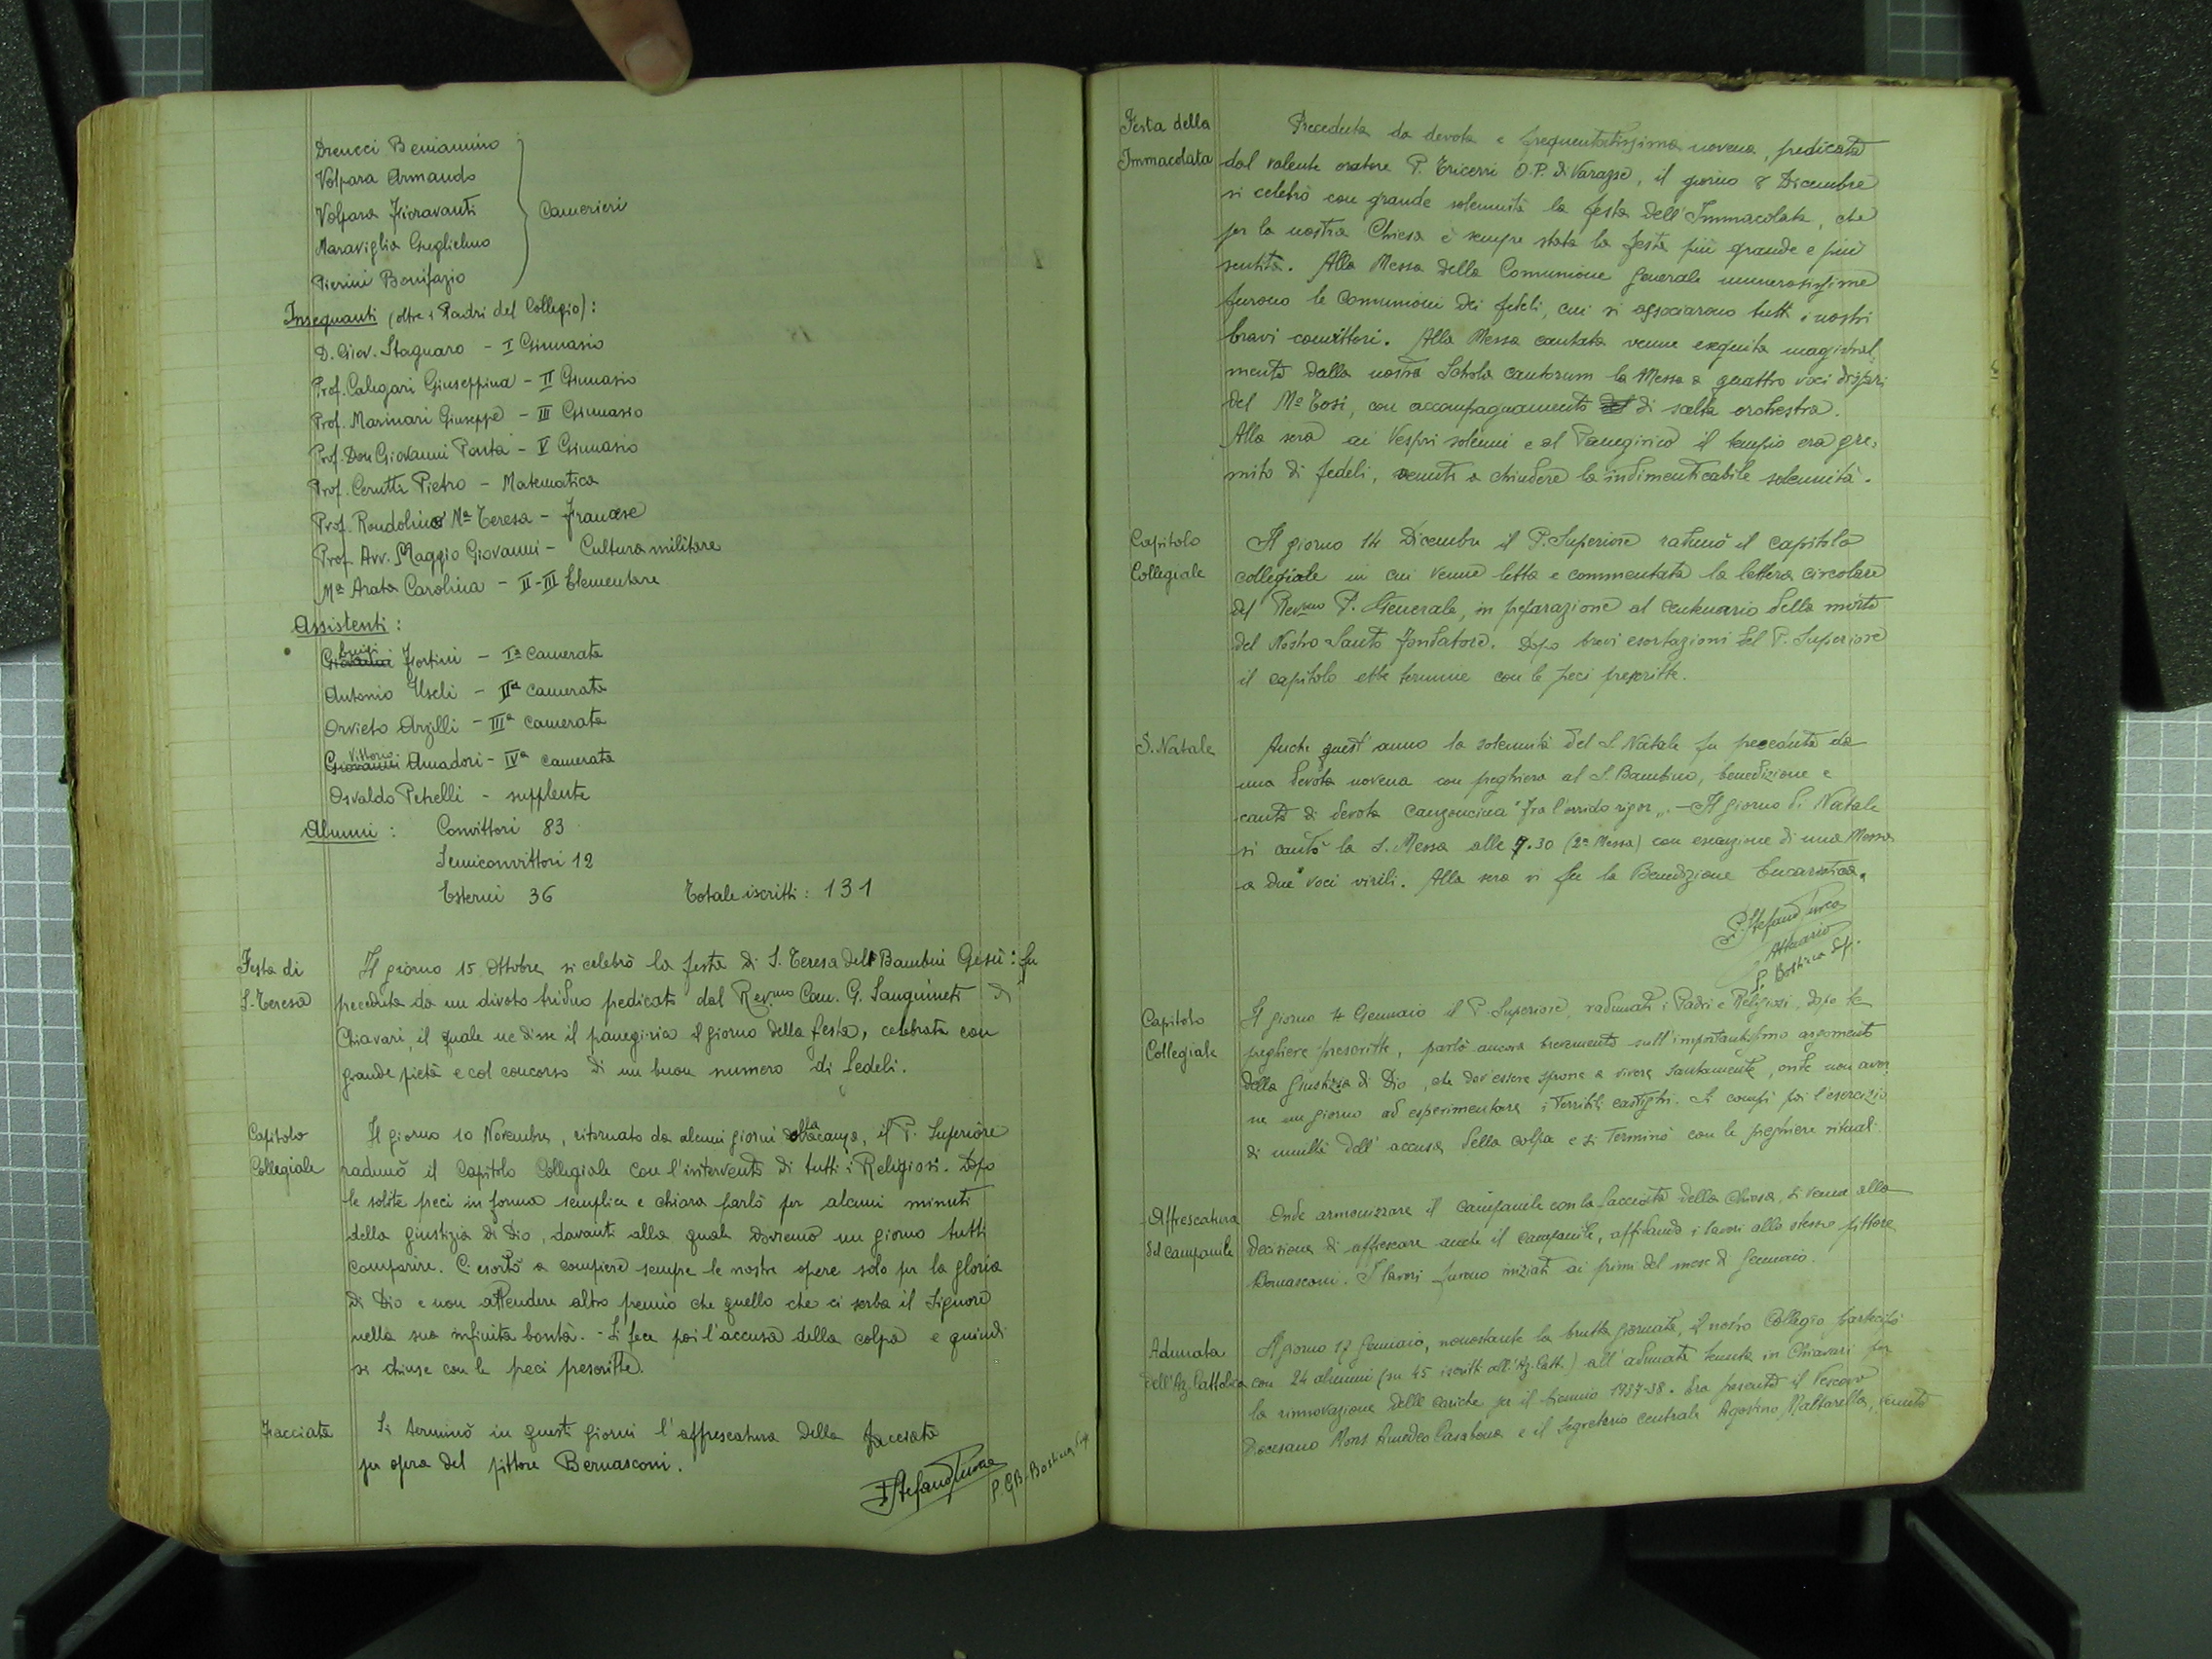 Dreucci Beniamino
Volpara Armando
Volpara Fioravanti
Camerieri
Maraviglia Guglielmo
Pierini Bonifazio
Insegnanti (oltre i Padri del Collegio):
D. Giov. Stagnaro - I Ginnasio
Prof. Calegari Giuseppina - II Ginnasio
Prof. Marinari Giuseppe - III Ginnasio
Prof. Don Giovanni Ponta - V Ginnasio
Prof. Cerutti Pietro - Matematica
Prof. Rondolino Ma Teresa - Francese
Prof. Avv. Maggio Giovanni - Cultura militare
Ma Arata Carolina - II-III Elementare
Assistenti:
Luigi
Fiorini - Ia camerata
Antonio Useli - IIa camerata
Orvieto Arzilli - IIIa camerata
Vittorio
Giovanni Amadori - IVa camerata
Osvaldo Petrelli - supplente
Alunni: Convittori 83
Semiconvittori 12
Esterni 36 Totale iscritti: 131
Festa di Il giorno 15 Ottobre si celebrò la festa di S. Teresa del Bambin Gesù: fu
S. Teresa preceduta da un divoto triduo predicato dal Revmo Can. G. Sanguineti di
Chiavari, il quale ne disse il panegirico il giorno della festa, celebrata con
grande pietà e col concorso di un buon numero di fedeli.
Capitolo Il giorno 10 Novembre, ritornato da alcuni giorni di vacanza, il P. Superiore
Collegiale radunò il Capitolo Collegiale con l'intervento di tutti i Religiosi. Dopo
le solite preci in forma semplice e chiara parlò per alcuni minuti
della giustizia di Dio, davanti alla quale dovremo un giorno tutti
comparire. C'esortò a compiere sempre le nostre opere solo per la gloria
di Dio e non attendere altro premio che quello che ci serba il Signore
nella sua infinita bontà. - Si fece poi l'accusa della colpa e quindi
si chiuse con le preci prescritte.
Facciata Si terminò in questi giorni l'affrescatura della facciata
per opera del pittore Bernasconi.
P. Stefano Turco P. G.B. Bostica Sup.
Festa della Preceduta da devota e frequentatissima novena, predicata
Immacolata dal valente oratore P. Ericerri O.P. di Varazze, il giorno 8 Dicembre
si celebrò con grande solennità la festa dell'Immacolata, che
per la nostra Chiesa è sempre stata la festa più grande e più
sentita. Alla Messa della Comunione generale numerosissime
furono le Comunioni dei fedeli, cui si associarono tutti i nostri
bravi convittori. Alla Messa cantata venne eseguita magistral-
mente dalla nostra Schola cantorum la Messa a quattro voci dispari
del Mo Tosi, con accompagnamento del di scelta orchestra.
Alla sera ai Vespri solenni e al Panegirico il tempio era gre-
mito di fedeli, venuti a chiudere la indimenticabile solennità.
Capitolo Il giorno 14 Dicembre il P. Superiore radunò il capitolo
Collegiale collegiale in cui venne letta e commentata la lettera circolare
del Revmo P. Generale, in preparazione al centenario della morte
del Nostro Santo Fondatore. Dopo brevi esortazioni del P. Superiore
il capitolo ebbe termine con le preci prescritte.
S. Natale Anche quest'anno la solennità del S. Natale fu preceduta da
una devota novena con preghiera al S. Bambino, benedizione e
canto di devota canzoncina "Fra l'orrido rigor". - Il giorno di Natale
si cantò la S. Messa alle 7.30 (2a Messa) con esecuzione di una Messa
a due voci virili. Alla sera vi fu la Benedizione Eucaristica.
P. Stefano Turco
Attuario
P. Bostica Sup.
Capitolo Il giorno 14 Gennaio il P. Superiore, radunati i Padri e Religiosi, dopo le
Collegiale preghiere prescritte, parlò ancora brevemente sull'importantissimo argomento
della giustizia di Dio, che dev'essere sprone a vivere santamente, onde non aver-
ne un giorno ad esperimentare i terribili castighi. Si compì poi l'esercizio
di umiltà dell'accusa della colpa e si terminò con le preghiere rituali.
Affrescatura Onde armonizzare il campanile con la facciata della Chiesa, si venne alla
del campanile decisione di affrescare anche il campanile, affidando i lavori allo stesso pittore
Bernasconi. I lavori furono iniziati ai primi del mese di Gennaio.
Adunata Il giorno 17 Gennaio, nonostante la brutta giornata, il nostro Collegio partecipò
dell'Az. Cattolica con 24 alunni (su 45 iscritti all'Az. Catt.) all'adunata tenuta in Chiavari per
la rinnovazione delle cariche per il biennio 1937-38. Era presente il Vescovo
Diocesano Mons. Amedeo Casabona e il Segretario centrale Agostino Maltarello, venuto